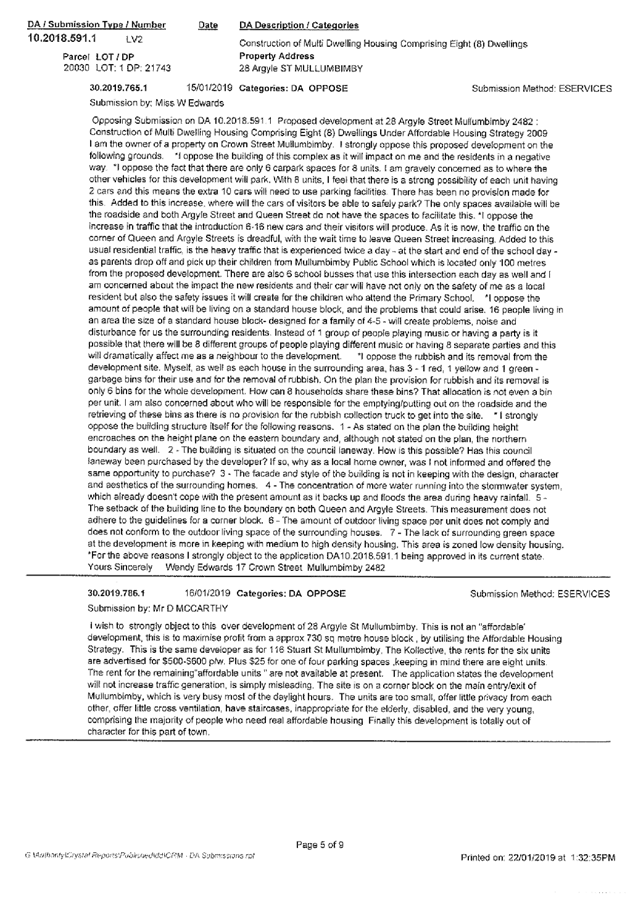 DA / Submission Type / Number Date DA Description / Categories
10.2018.591.1 LV2 Construction of Multi Dwelling Housing Comprising Eight (8) Dwellings
Parcel LOT / DP Property Address
20030 LOT: 1 DP: 21743 28 Argyle ST MULLUMBIMBY
30.2019.765.1 15/01/2019 Categories: DA OPPOSE Submission Method: ESERVICES
Submission by: Miss W Edwards
Opposing Submission on DA 10.2018.591.1 Proposed development at 28 Argyle Street Mullumbimby 2482 :
Construction of Multi Dwelling Housing Comprising Eight (8) Dwellings Under Affordable Housing Strategy 2009
I am the owner of a property on Crown Street Mullumbimby. I strongly oppose this proposed development on the
following grounds. *I oppose the building of this complex as it will impact on me and the residents in a negative
way. *I oppose the fact that there are only 6 carpark spaces for 8 units. I am gravely concerned as to where the
other vehicles for this development will park. With 8 units, I feel that there is a strong possibility of each unit having
2 cars and this means the extra 10 cars will need to use parking facilities. There has been no provision made for
this. Added to this increase, where will the cars of visitors be able to safely park? The only spaces available will be
the roadside and both Argyle Street and Queen Street do not have the spaces to facilitate this. *I oppose the
increase in traffic that the introduction 6-16 new cars and their visitors will produce. As it is now, the traffic on the
corner of Queen and Argyle Streets is dreadful, with the wait time to leave Queen Street increasing. Added to this
usual residential traffic, is the heavy traffic that is experienced twice a day - at the start and end of the school day -
as parents drop off and pick up their children from Mullumbimby Public School which is located only 100 metres
from the proposed development. There are also 6 school busses that use this intersection each day as well and I
am concerned about the impact the new residents and their car will have not only on the safety of me as a local
resident but also the safety issues it will create for the children who attend the Primary School. *I oppose the
amount of people that will be living on a standard house block, and the problems that could arise. 16 people living in
an area the size of a standard house block- designed for a family of 4-5 - will create problems, noise and
disturbance for us the surrounding residents. Instead of 1 group of people playing music or having a party is it
possible that there will be 8 different groups of people playing different music or having 8 separate parties and this
will dramatically affect me as a neighbour to the development. *I oppose the rubbish and its removal from the
development site. Myself, as well as each house in the surrounding area, has 3 - 1 red, 1 yellow and 1 green -
garbage bins for their use and for the removal of rubbish. On the plan the provision for rubbish and its removal is
only 6 bins for the whole development. How can 8 households share these bins? That allocation is not even a bin
per unit. I am also concerned about who will be responsible for the emptying/putting out on the roadside and the
retrieving of these bins as there is no provision for the rubbish collection truck to get into the site. * I strongly
oppose the building structure itself for the following reasons. 1 - As stated on the plan the building height
encroaches on the height plane on the eastern boundary and, although not stated on the plan, the northern
boundary as well. 2 - The building is situated on the council laneway. How is this possible? Has this council
laneway been purchased by the developer? If so, why as a local home owner, was I not informed and offered the
same opportunity to purchase? 3 - The facade and style of the building is not in keeping with the design, character
and aesthetics of the surrounding homes. 4 - The concentration of more water running into the stormwater system,
which already doesn't cope with the present amount as it backs up and floods the area during heavy rainfall. 5 -
The setback of the building line to the boundary on both Queen and Argyle Streets. This measurement does not
adhere to the guidelines for a corner block. 6 - The amount of outdoor living space per unit does not comply and
does not conform to the outdoor living space of the surrounding houses. 7 - The lack of surrounding green space
at the development is more in keeping with medium to high density housing. This area is zoned low density housing.
*For the above reasons I strongly object to the application DA10.2018.591.1 being approved in its current state.
Yours Sincerely Wendy Edwards 17 Crown Street Mullumbimby 2482
30.2019.786.1 16/01/2019 Categories: DA OPPOSE Submission Method: ESERVICES
Submission by: Mr D MCCARTHY
I wish to strongly object to this over development of 28 Argyle St Mullumbimby. This is not an "affordable'
development, this is to maximise profit from a approx 730 sq metre house block , by utilising the Affordable Housing
Strategy. This is the same developer as for 116 Stuart St Mullumbimby, The Kollective, the rents for the six units
are advertised for $500-$600 p/w. Plus $25 for one of four parking spaces ,keeping in mind there are eight units.
The rent for the remaining"affordable units " are not available at present. The application states the development
will not increase traffic generation, is simply misleading. The site is on a corner block on the main entry/exit of
Mullumbimby, which is very busy most of the daylight hours. The units are too small, offer little privacy from each
other, offer little cross ventilation, have staircases, inappropriate for the elderly, disabled, and the very young,
comprising the majority of people who need real affordable housing Finally this development is totally out of
character for this part of town.
Page 5 of 9
Printed on: 22/01/2019 at 1:32:35PM